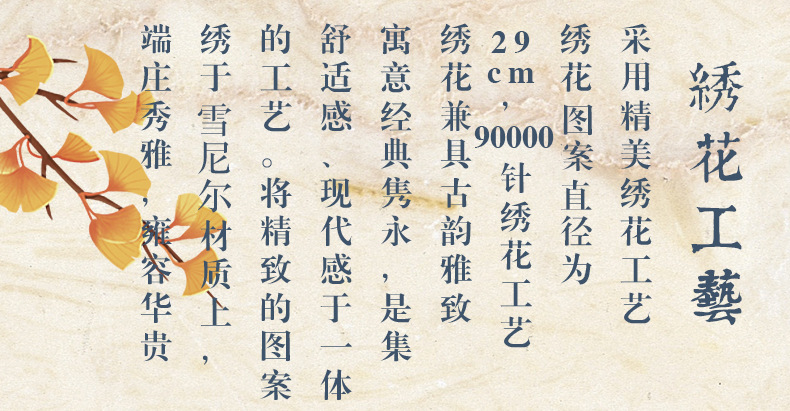 綉花工藝
采用精美绣花工艺
绣花图案直径为
29cm，90000针绣花工艺
绣花兼具古韵雅致
寓意经典隽永，是集
舒适感、现代感于一体
的工艺。将精致的图案
绣于雪尼尔材质上，
端庄秀雅，雍容华贵